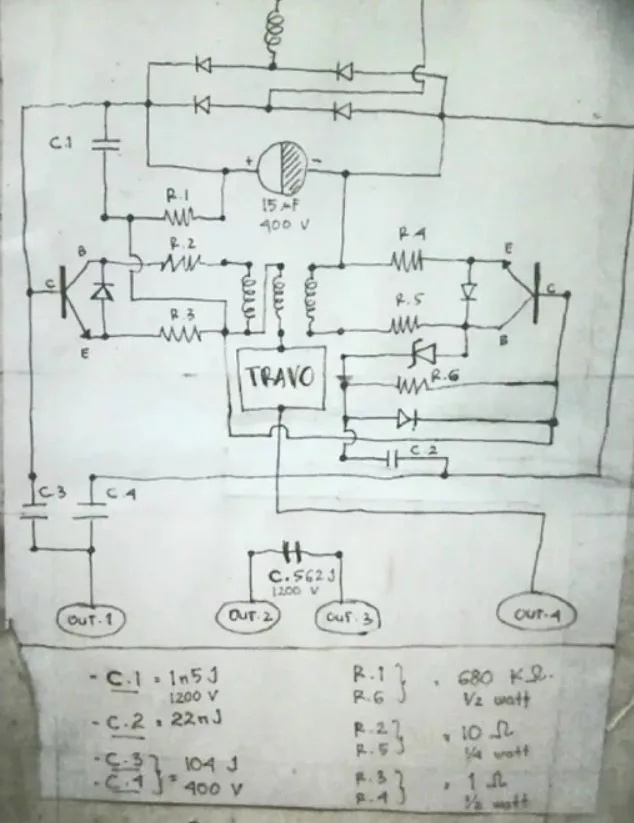 C.1
+
-
R.1
15 µF
400 V
R.4
B
R.2
E
C
C
R.3
R.5
B
E
TRAVO
R.6
C.2
C.3
C.4
C.562J
1200 V
OUT.1
OUT.2
OUT.3
OUT.4
- C.1 = 1n5J
1200 V
- C.2 = 22nJ
- C.3
- C.4 } = 104 J
400 V
R.1
R.6 } . 680 KΩ
1/2 watt
R.2
R.5 } . 10 Ω
1/4 watt
R.3
R.4 } . 1 Ω
1/2 watt